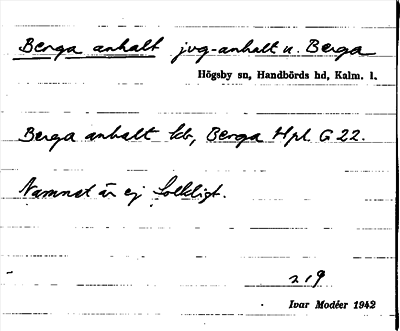 Berga anhalt jvg-anhalt u. Berga
Högsby sn, Handbörds hd, Kalm. l.
Berga anhalt kb, Berga Hpl. G 22.
Namnet är ej folkligt.
219
Ivar Modéer 1942